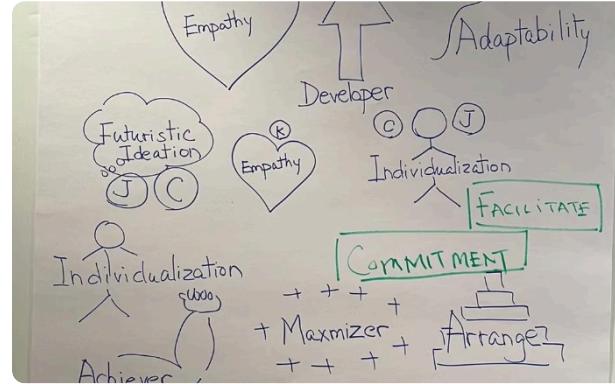 Empathy
Adaptability
Developer
Futuristic
Ideation
J C
K
Empathy
C J
Individualization
FACILITATE
COMMITMENT
Individualization
+ + + +
+ Maxmizer +
+ + + +
Arranger
Achiever